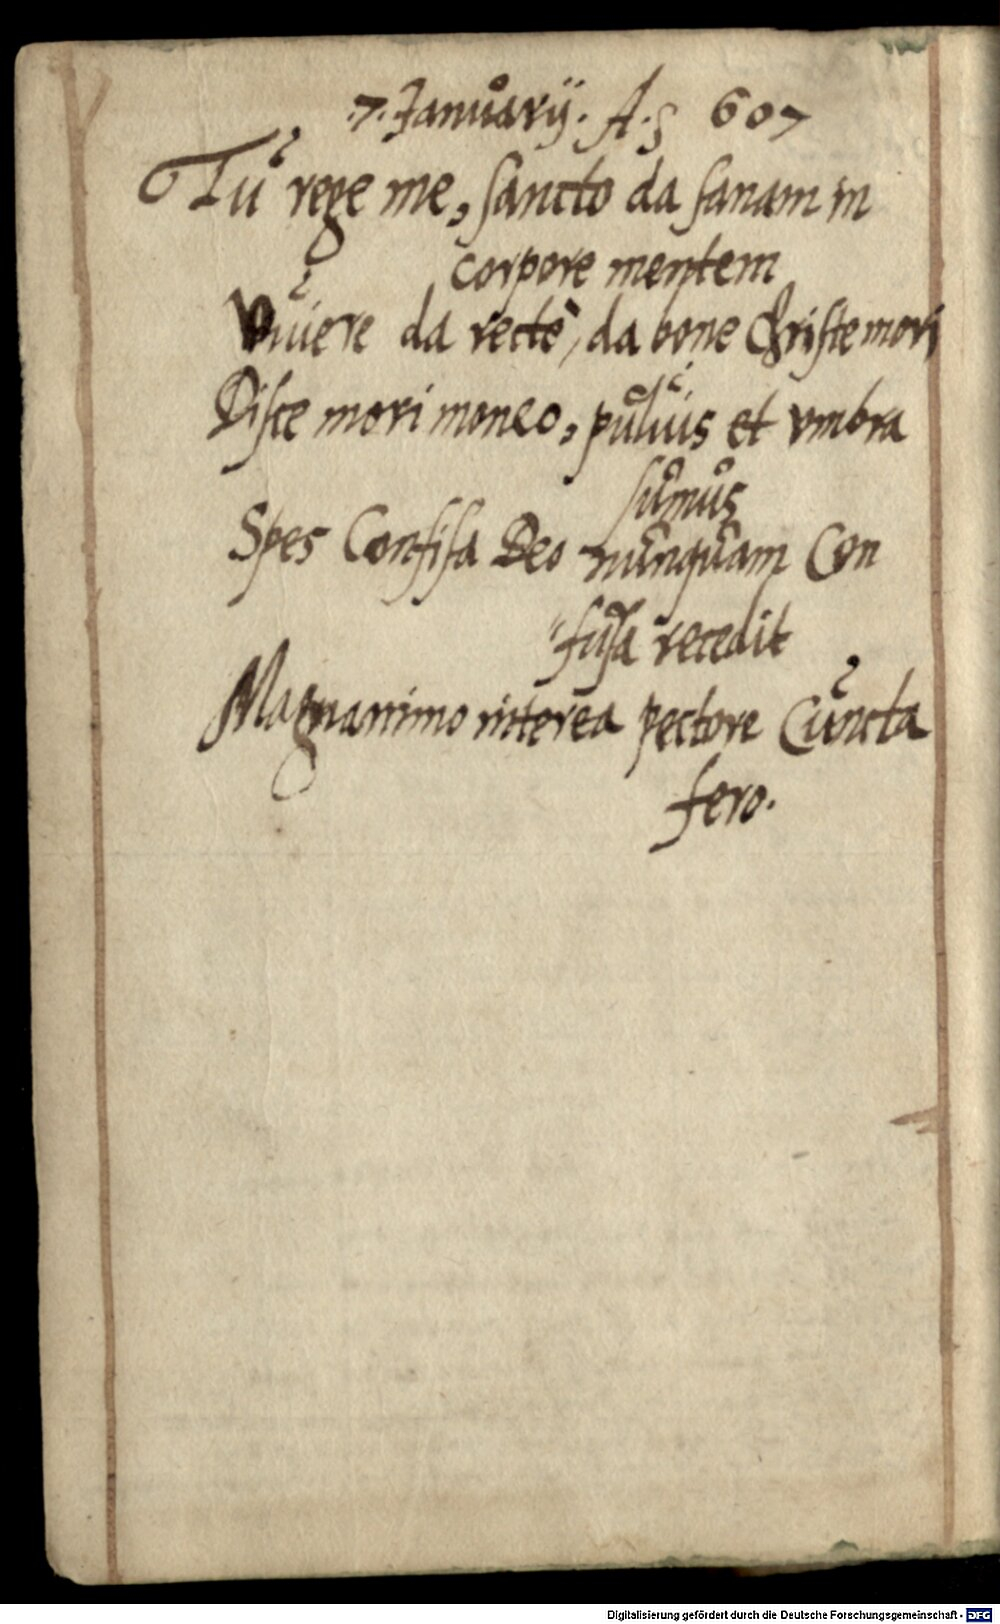 .7. Januarij. A.ς 607
Tu rege me, sancto da sanam in
corpore mentem
Viuere da rectè, da bone Christe mori
Disce mori moneo, puluis et vmbra
sumus
Spes Confisa Deo nunquam Con
"fusa recedit
Magnanimo interea pectore Cuncta
fero.
Digitalisierung gefördert durch die Deutsche Forschungsgemeinschaft - DFG